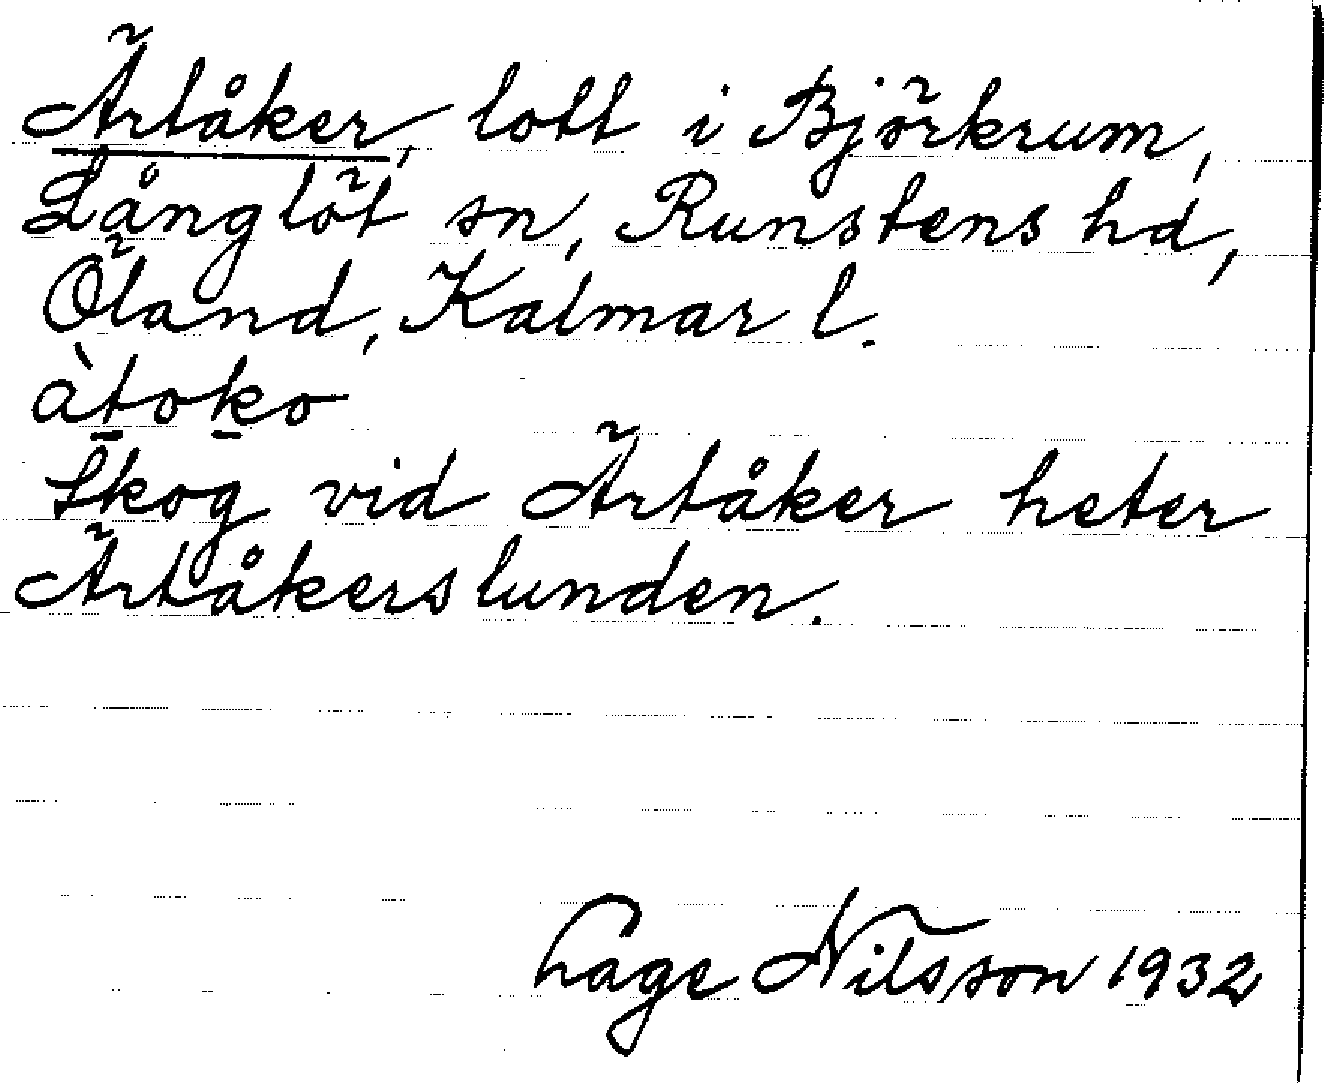 Ärtåker, lott i Björkrum,
Långlöt sn, Runstens hd,
Öland, Kalmar l.
àt̲ok̲o
Skog vid Ärtåker heter
Ärtåkerslunden.
Lage Nilsson 1932